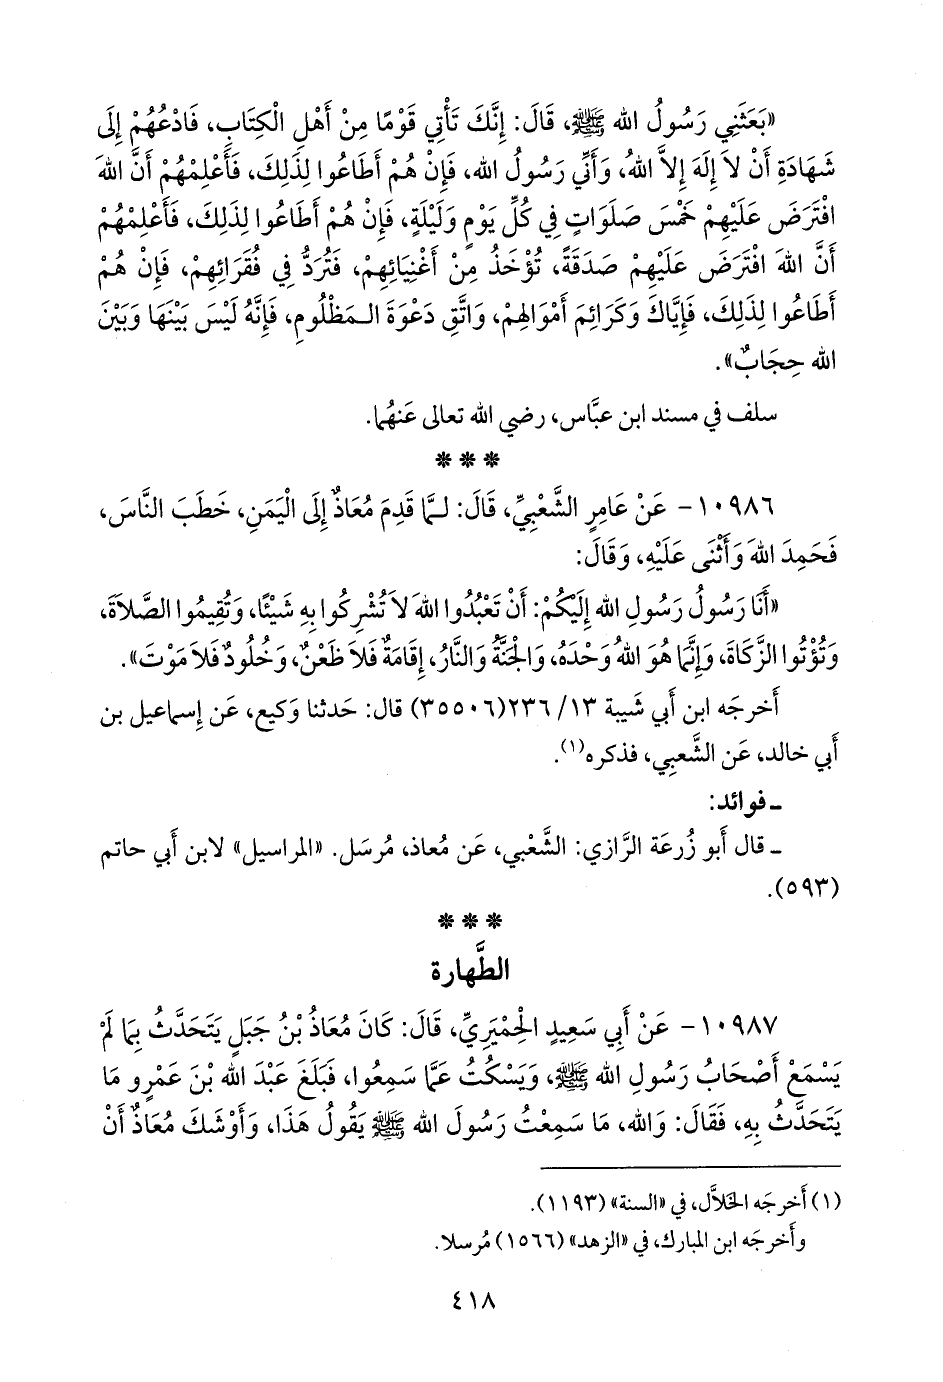 «بَعَثَنِي رَسُولُ الله ﷺ، قَالَ: إِنَّكَ تَأْتِي قَوْمًا مِنْ أَهْلِ الْكِتَابِ، فَادْعُهُمْ إِلَى
شَهَادَةِ أَنْ لاَ إِلَهَ إِلاَّ اللهُ، وَأَنِّي رَسُولُ الله، فَإِنْ هُمْ أَطَاعُوا لِذَلِكَ، فَأَعْلِمْهُمْ أَنَّ اللهَ
افْتَرَضَ عَلَيْهِمْ خَمْسَ صَلَوَاتٍ فِي كُلِّ يَوْمٍ وَلَيْلَةٍ، فَإِنْ هُمْ أَطَاعُوا لِذَلِكَ، فَأَعْلِمْهُمْ
أَنَّ اللهَ افْتَرَضَ عَلَيْهِمْ صَدَقَةً، تُؤْخَذُ مِنْ أَغْنِيَائِهِمْ، فَتُرَدُّ فِي فُقَرَائِهِمْ، فَإِنْ هُمْ
أَطَاعُوا لِذَلِكَ، فَإِيَّاكَ وَكَرَائِمَ أَمْوَالِهِمْ، وَاتَّقِ دَعْوَةَ الـمَظْلُومِ، فَإِنَّهُ لَيْسَ بَيْنَهَا وَبَيْنَ
الله حِجَابٌ».
سلف في مسند ابن عبَّاس، رضي الله تعالى عَنهُما.
* * *
١٠٩٨٦ - عَنْ عَامِرٍ الشَّعْبِيِّ، قَالَ: لـمَّا قَدِمَ مُعَاذٌ إِلَى الْيَمَنِ، خَطَبَ النَّاسَ،
فَحَمِدَ اللهَ وَأَثْنَى عَلَيْهِ، وَقَالَ:
«أَنَا رَسُولُ رَسُولِ الله إِلَيْكُمْ: أَنْ تَعْبُدُوا اللهَ لاَ تُشْرِكُوا بِهِ شَيْئًا، وَتُقِيمُوا الصَّلاَةَ،
وَتُؤْتُوا الزَّكَاةَ، وَإِنَّمَا هُوَ اللهُ وَحْدَهُ، وَالْجَنَّةُ وَالنَّارُ، إِقَامَةٌ فَلاَ ظَعْنٌ، وَخُلُودٌ فَلاَ مَوْتَ».
أَخرجَه ابن أَبي شَيبة ١٣/ ٢٣٦(٣٥٥٠٦) قال: حَدثنا وَكيع، عَن إِسماعيل بن
أَبي خالد، عَن الشَّعبِي، فذكره(١).
ـ فوائد:
ـ قال أَبو زُرعَة الرَّازي: الشَّعْبي، عَن مُعاذ، مُرسَل. «المراسيل» لابن أَبي حاتم
(٥٩٣).
* * *
الطَّهارة
١٠٩٨٧ - عَنْ أَبِي سَعِيدٍ الْحِمْيَرِيِّ، قَالَ: كَانَ مُعَاذُ بْنُ جَبَلٍ يَتَحَدَّثُ بِمَا لَمْ
يَسْمَعْ أَصْحَابُ رَسُولِ الله ﷺ، وَيَسْكُتُ عَمَّا سَمِعُوا، فَبَلَغَ عَبْدَ الله بْنَ عَمْرٍو مَا
يَتَحَدَّثُ بِهِ، فَقَالَ: وَالله، مَا سَمِعْتُ رَسُولَ الله ﷺ يَقُولُ هَذَا، وَأَوْشَكَ مُعَاذٌ أَنْ
(١) أَخرجَه الخَلاَّل، في «السنة» (١١٩٣).
وأَخرجَه ابن المبارك، في «الزهد» (١٥٦٦) مُرسلا.
٤١٨